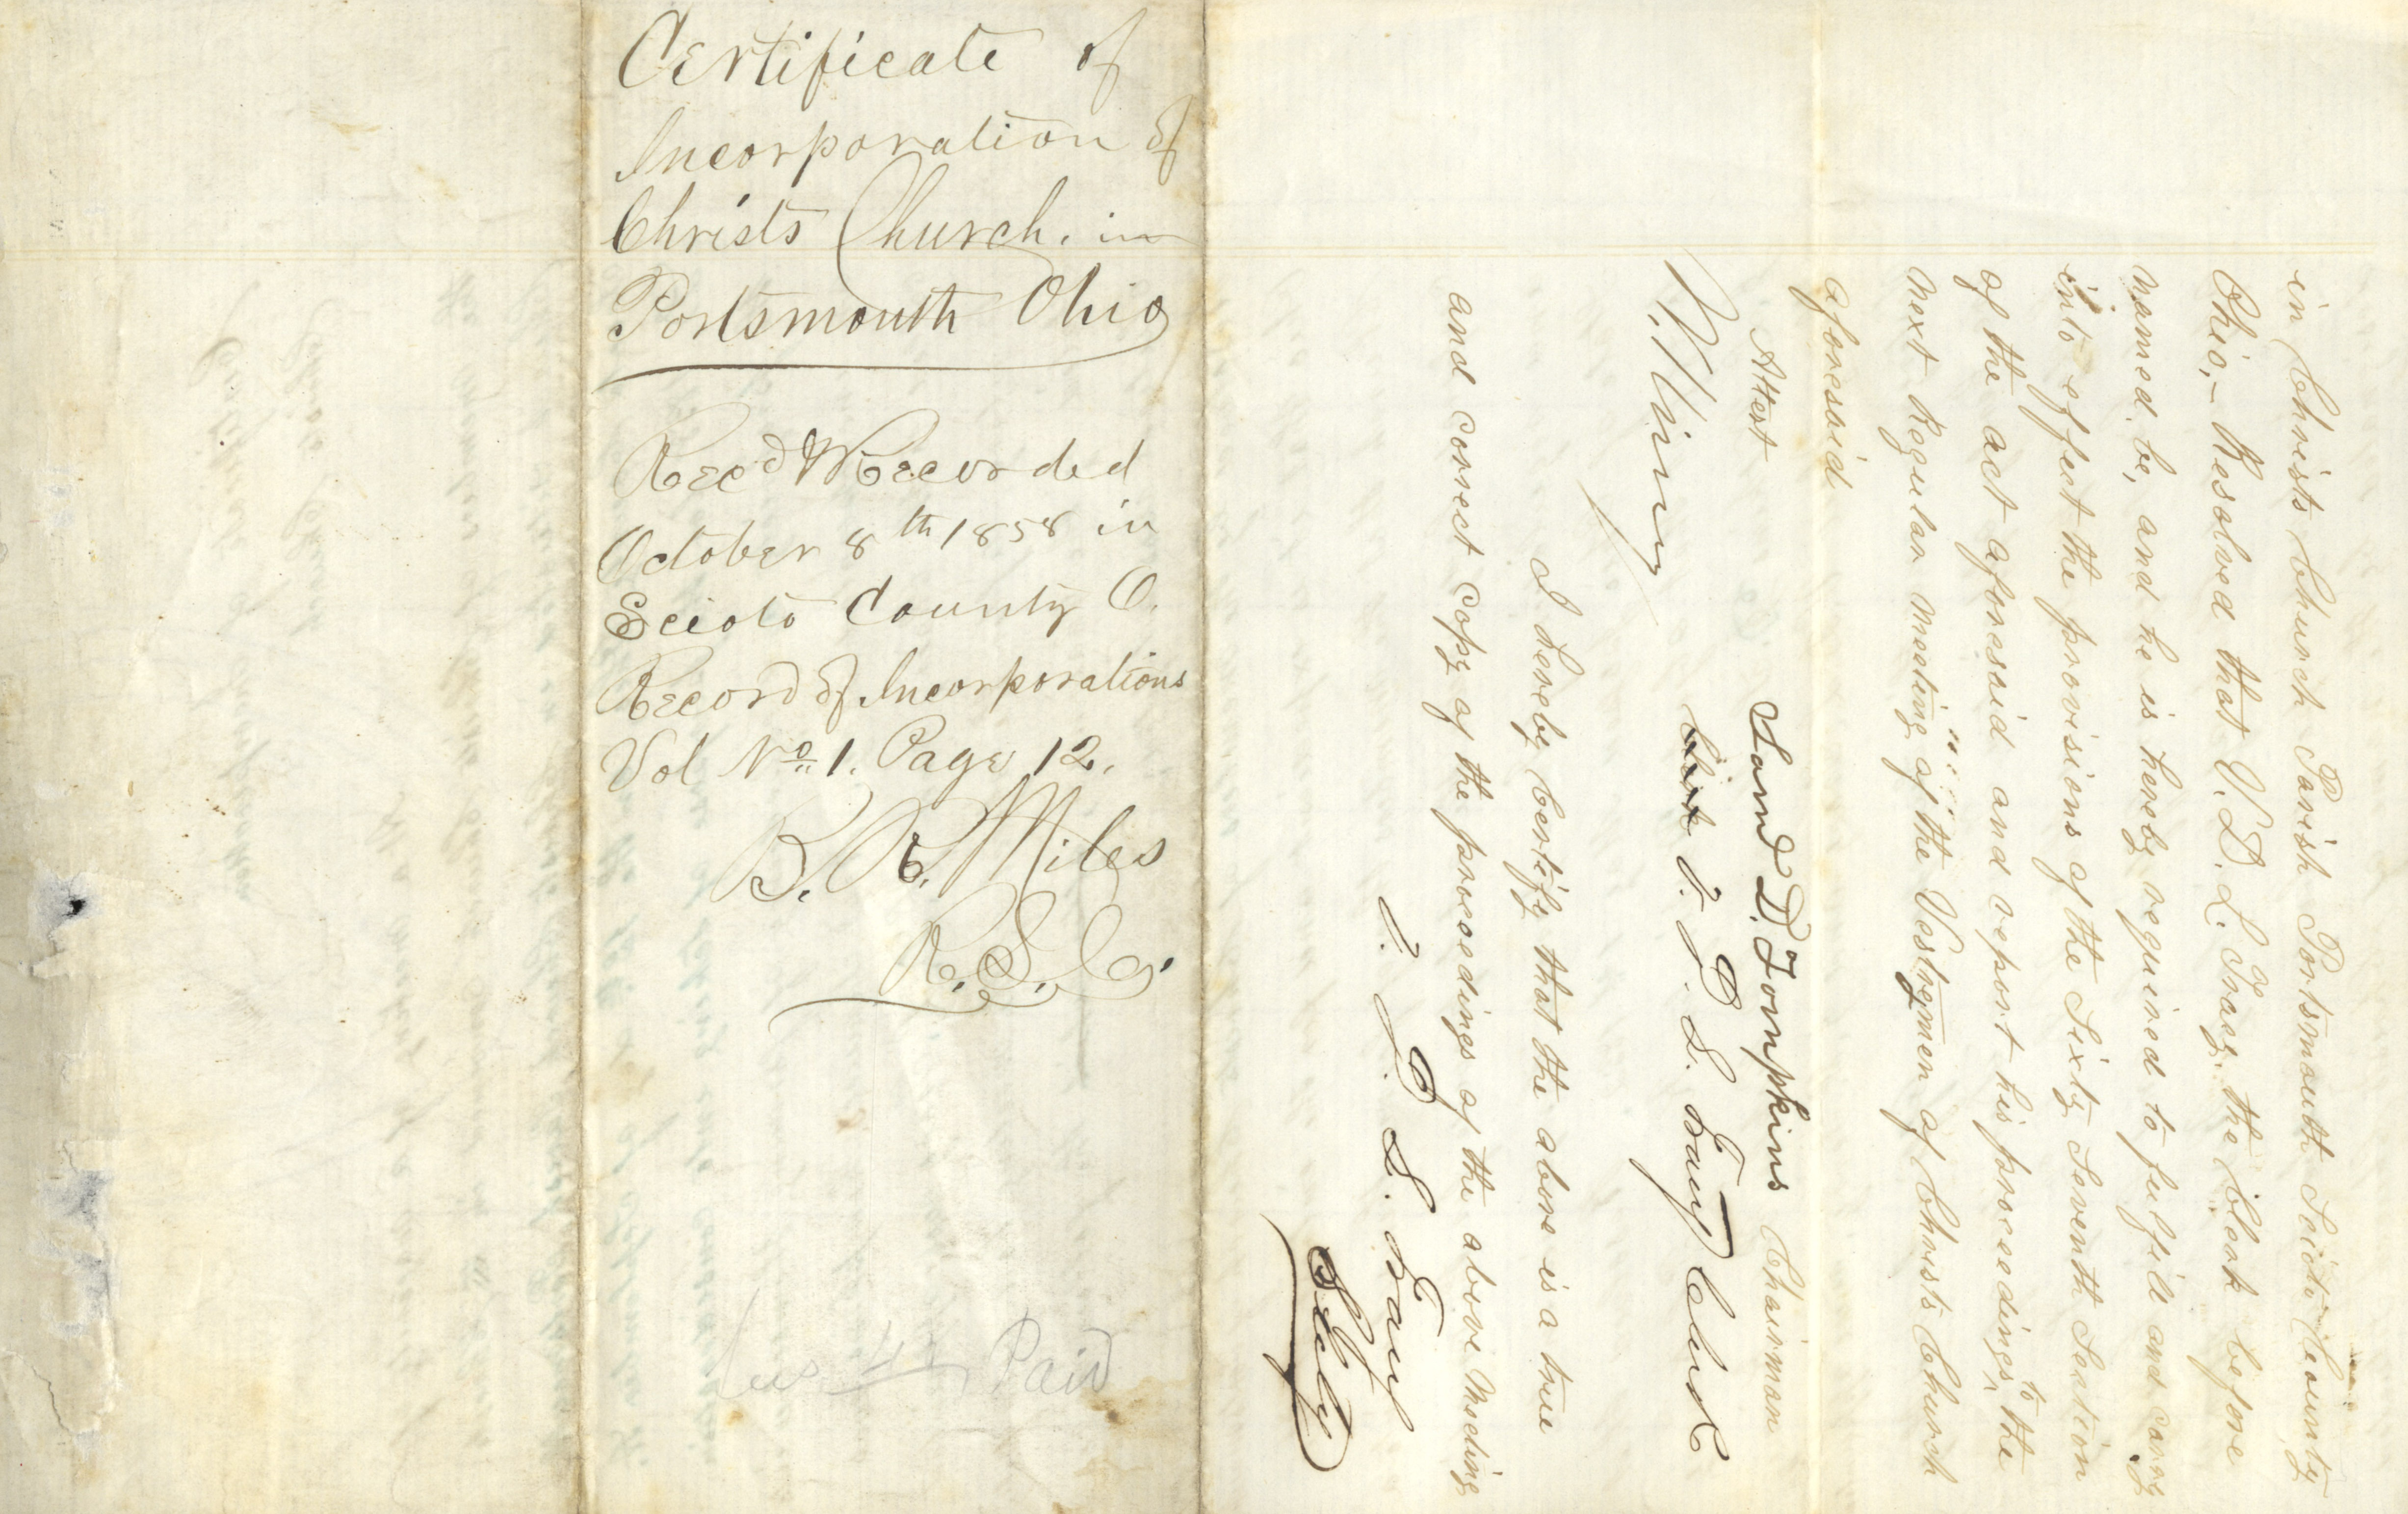 Certificate of
Incorporation of
Christs Church. in
Portsmouth Ohio
Recd & Recorded
October 8th 1858 in
Scioto County O.
Record of Incorporations
Vol No 1. Page 12.
B. R. Miles
R. S. Co.
Paid
in Christs Church Parish Portsmouth Scioto County
Ohio,- Resolved that V. D. L. Tracy, the Clerk before
named, be, and he is hereby required to fulfill and carry
into effect the provisions of the Sixty Seventh Section
of the act aforesaid and report his proceedings, to the
next Regular meeting of the Vestrymen of Christs Church
aforesaid
Attest
Saml D. Tompkins Chairman
Clerk
I hereby Certify that the above is a true
and correct copy of the proceedings of the above Meeting